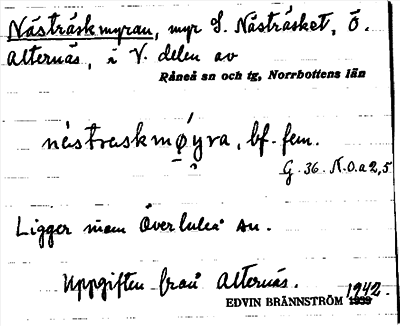 Nästräskmyran, myr S. Nästräsket, Ö.
Alternäs, i V. delen av
Råneå sn och tg, Norrbottens län
nästraskmøyra, bf. fem.
G. 36. K.O.a 2,5
Ligger inom Överluleå sn.
Uppgiften från Alternäs.
EDVIN BRÄNNSTRÖM 1939 1942.